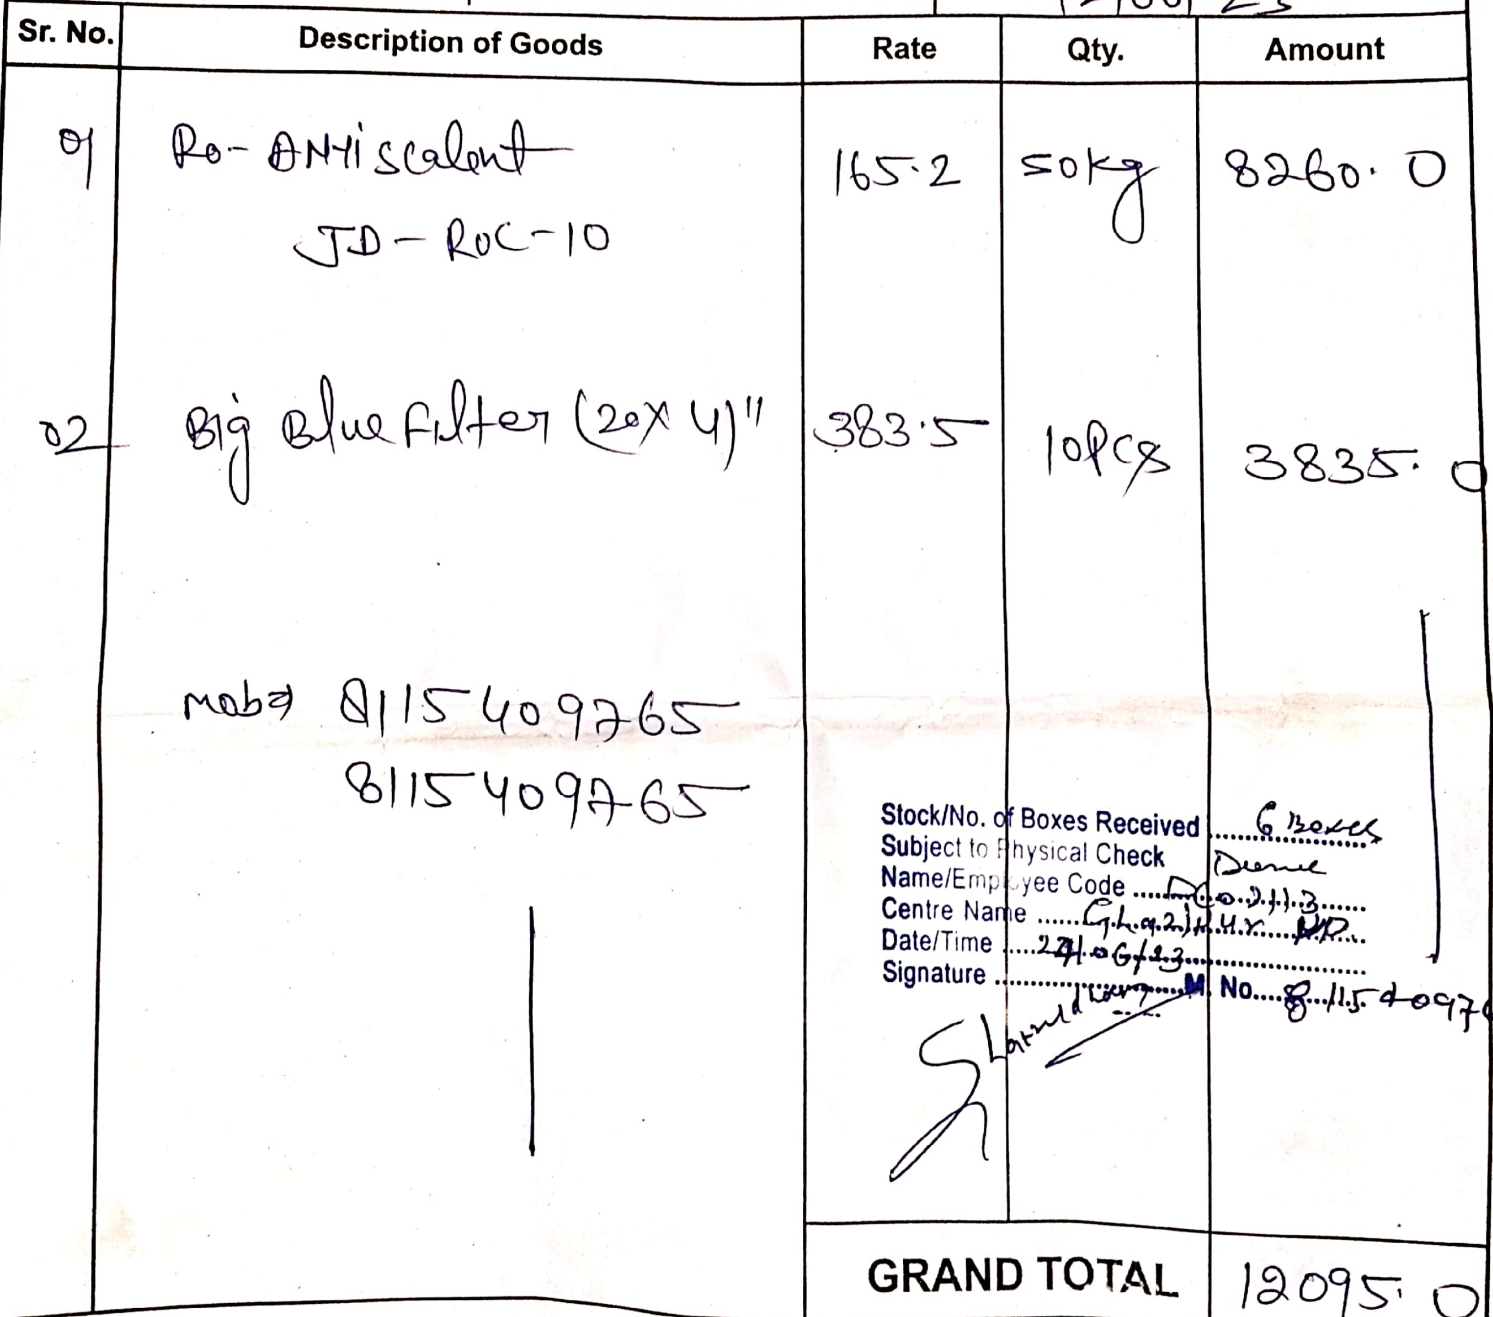 Sr. No. Description of Goods Rate Qty. Amount
01 Ro-Antiscalent 165.2 50kg 8260.0
JD-ROC-10
02 Big Blue Filter (20x4)" 383.5 10Pcs 3835.0
8115409765
8115409765
Stock/No. of Boxes Received 6 Boxes
Subject to Physical Check
Name/Employee Code
Centre Name
Date/Time
Signature M. No. 811540976
GRAND TOTAL 12095.0